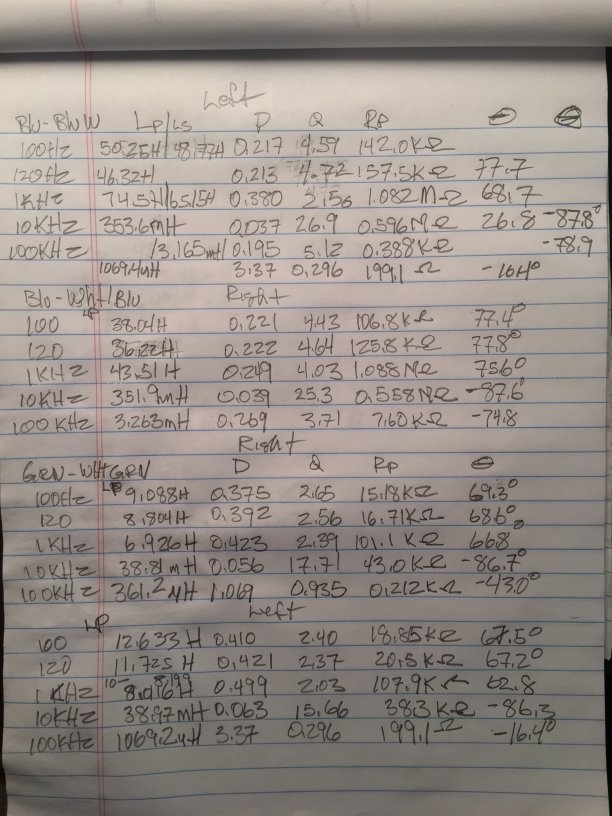 Left
Blu-BluW Lp/Ls D Q Rp ⊖ ⊖
100Hz 50.25H/48.77H 0.217 4.59 142.0KΩ
120Hz 46.32H 0.213 4.72 157.5KΩ 77.7
1KHz 74.5H/65.15H 0.380 2.56 1.082MΩ 68.7
10KHz 353.6mH 0.037 26.9 0.596MΩ 26.8 -87.8°
100KHz /3.165mH 0.195 5.12 0.388KΩ -78.9
1069.4uH 3.37 0.296 199.1 Ω -16.4°
Blu-Wht/Blu Right
Lp
100 38.04H 0.221 4.43 106.8KΩ 77.4°
120 36.22H 0.222 4.64 125.8KΩ 77.8°
1KHz 43.51H 0.249 4.03 1.088MΩ 756°
10KHz 351.9mH 0.039 25.3 0.558MΩ -87.6°
100KHz 3.263mH 0.269 3.71 7.60KΩ -74.8
Right
GRN-WHTGRN D Q Rp ⊖
100Hz Lp 9.088H 0.375 2.65 15.18KΩ 69.3°
120 8.804H 0.392 2.56 16.71KΩ 68.6°
1KHz 6.926H 0.423 2.39 101.1KΩ 66.8°
10KHz 38.81mH 0.056 17.71 43.0KΩ -86.7°
100KHz 361.2uH 1.069 0.935 0.212KΩ -43.0°
Left
Lp
100 12.633H 0.410 2.40 18.85KΩ 67.5°
120 11.725H 0.421 2.37 20.5KΩ 67.2°
1KHz 0.499 2.03 107.9K 62.8
10KHz 38.97mH 0.063 15.66 383KΩ -86.3
100KHz 1069.2uH 3.37 0.296 199.1Ω -16.4°